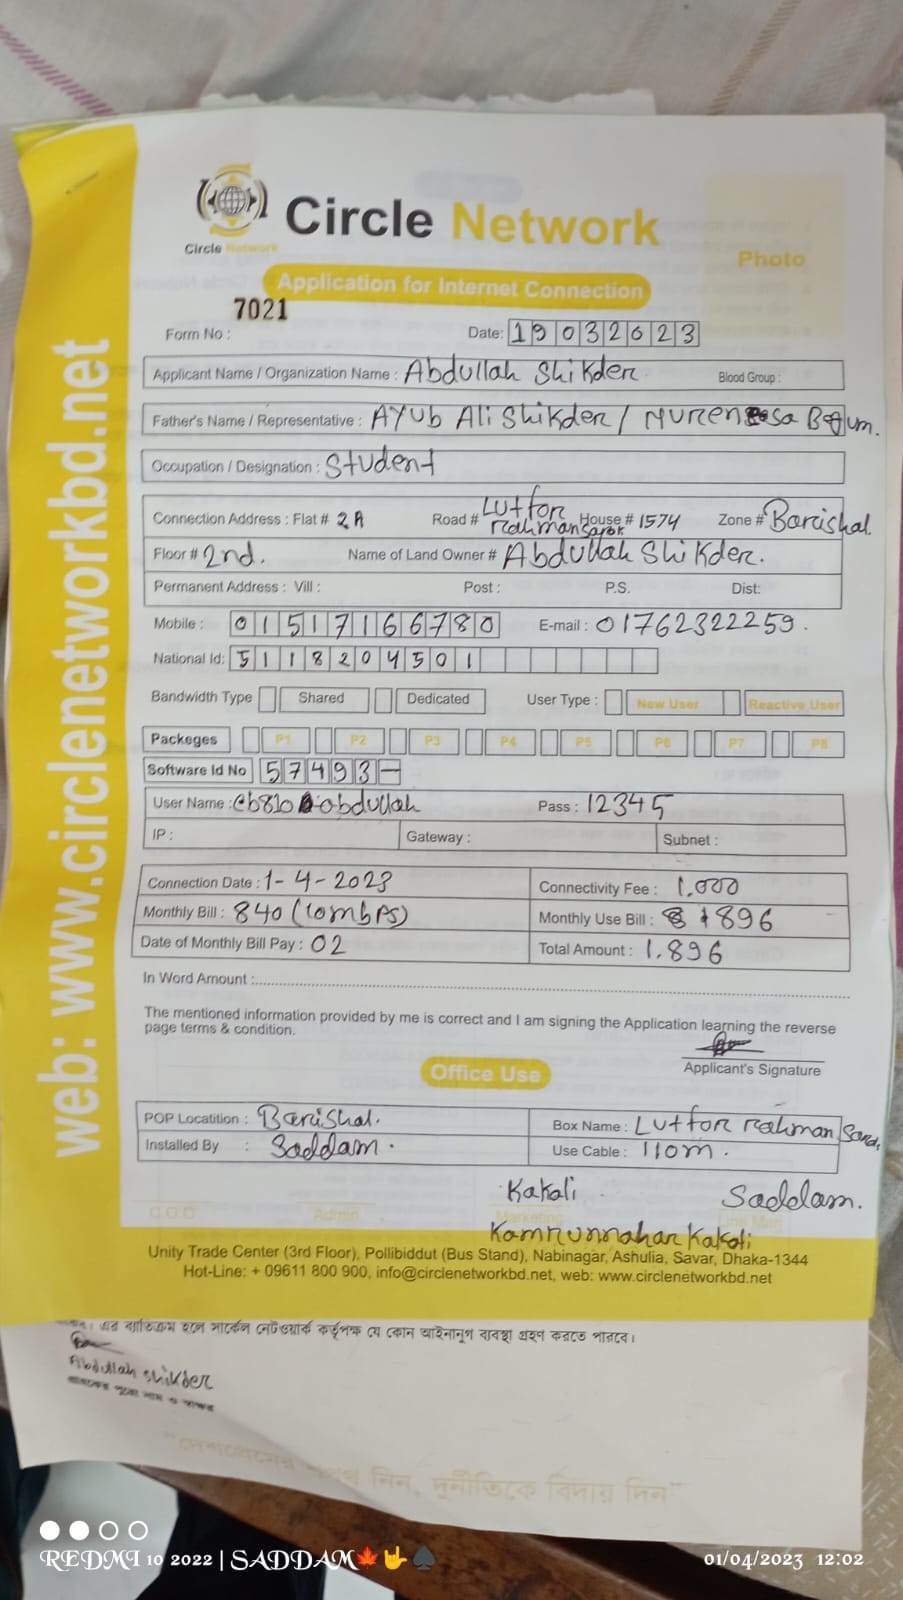 Circle Network
Circle Network
Photo
Application for Internet Connection
7021
Form No :
Date: 19032023
Applicant Name / Organization Name : Abdullah Shikder
Blood Group :
Father's Name / Representative : Ayub Ali Shikder / Begum.
Occupation / Designation : Student
Connection Address : Flat # 2A Road # Lutfor rahman sarok House # 1574 Zone # Barishal.
Floor # 2nd. Name of Land Owner # Abdullah Shikder.
Permanent Address : Vill : Post : P.S. Dist:
Mobile : 01517166780 E-mail : 01762322259.
National Id: 5118204501
Bandwidth Type Shared Dedicated User Type : New User Reactive User
Packeges P1 P2 P3 P4 P5 P6 P7 P8
Software Id No 57493-
User Name : abdullah Pass : 12345
IP : Gateway : Subnet :
Connection Date : 1-4-2023 Connectivity Fee : 1.000
Monthly Bill : 840 (10mbps) Monthly Use Bill : 896
Date of Monthly Bill Pay : 02 Total Amount : 1.896
In Word Amount :
The mentioned information provided by me is correct and I am signing the Application learning the reverse
page terms & condition.
Applicant's Signature
Office Use
POP Locatition : Barishal. Box Name : Lutfor rahman
Installed By : Saddam. Use Cable : 110m.
Kakoli Saddam.
C.O.O Admin Marketing Line Man
Kamrunnahar Kakoli
Unity Trade Center (3rd Floor), Pollibiddut (Bus Stand), Nabinagar, Ashulia, Savar, Dhaka-1344
Hot-Line: + 09611 800 900, info@circlenetworkbd.net, web: www.circlenetworkbd.net
web: www.circlenetworkbd.net
এর ব্যতিক্রম হলে সার্কেল নেটওয়ার্ক কর্তৃপক্ষ যে কোন আইনানুগ ব্যবস্থা গ্রহণ করতে পারবে।
Abdullah Shikder
গ্রাহকের পুরো নাম ও স্বাক্ষর
নিন, দুর্নীতিকে বিদায় দিন"
REDMI 10 2022 | SADDAM🍁🤟♠
01/04/2023 12:02